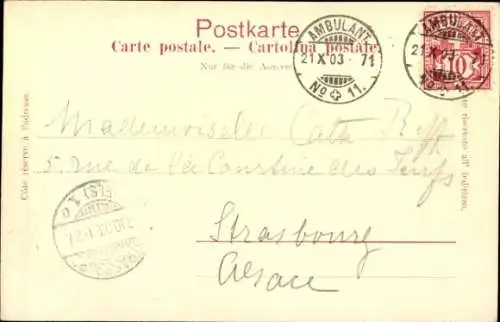 Postkarte
Carte postale. — Cartolina postale.
Nur für die Adresse
AMBULANT
21.X.03 - 71
No 11.
AMBULANT
21.X
No 11.
10
Côté réservé à l'adresse.
Mademoiselle Cath
5. rue de la Courtine des Juifs
Strasbourg
Alsace